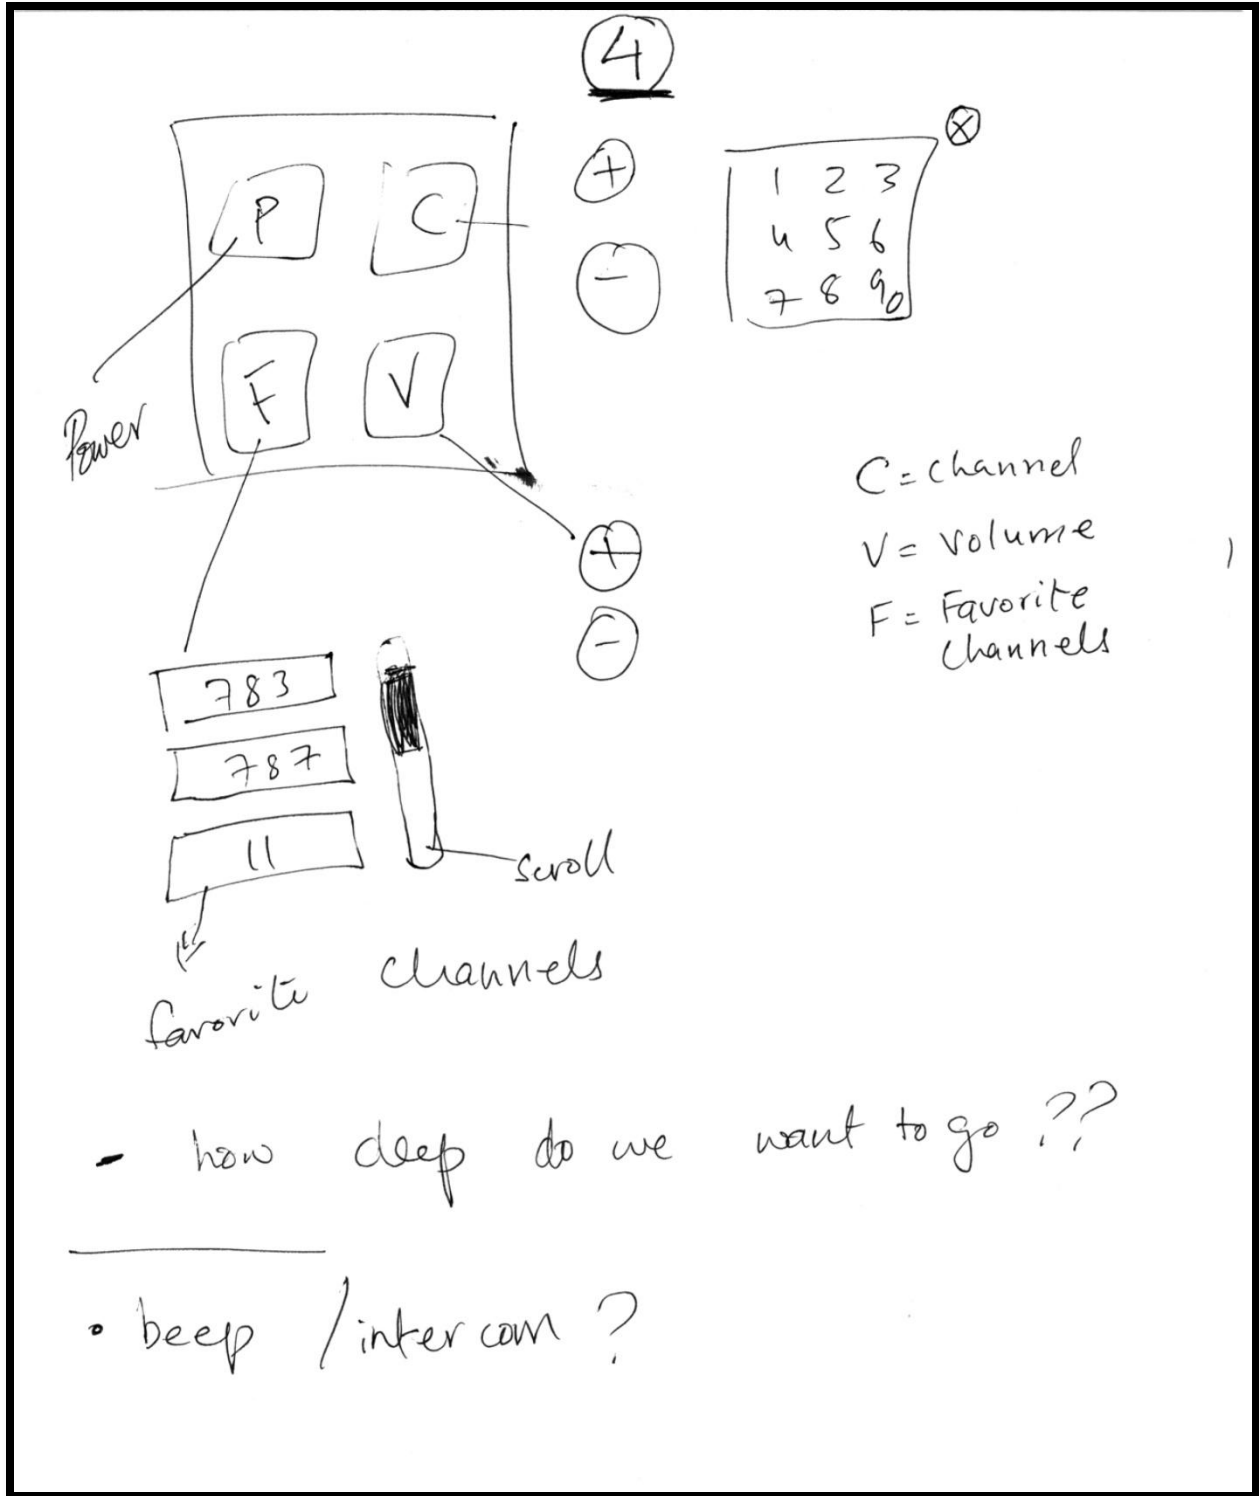 4
P C
+
-
X
1 2 3
4 5 6
7 8 9 0
F V
Power
C = channel
V = Volume
F = Favorite
channels
+
-
783
787
11
scroll
favorite channels
- how deep do we want to go ??
• beep / intercom ?